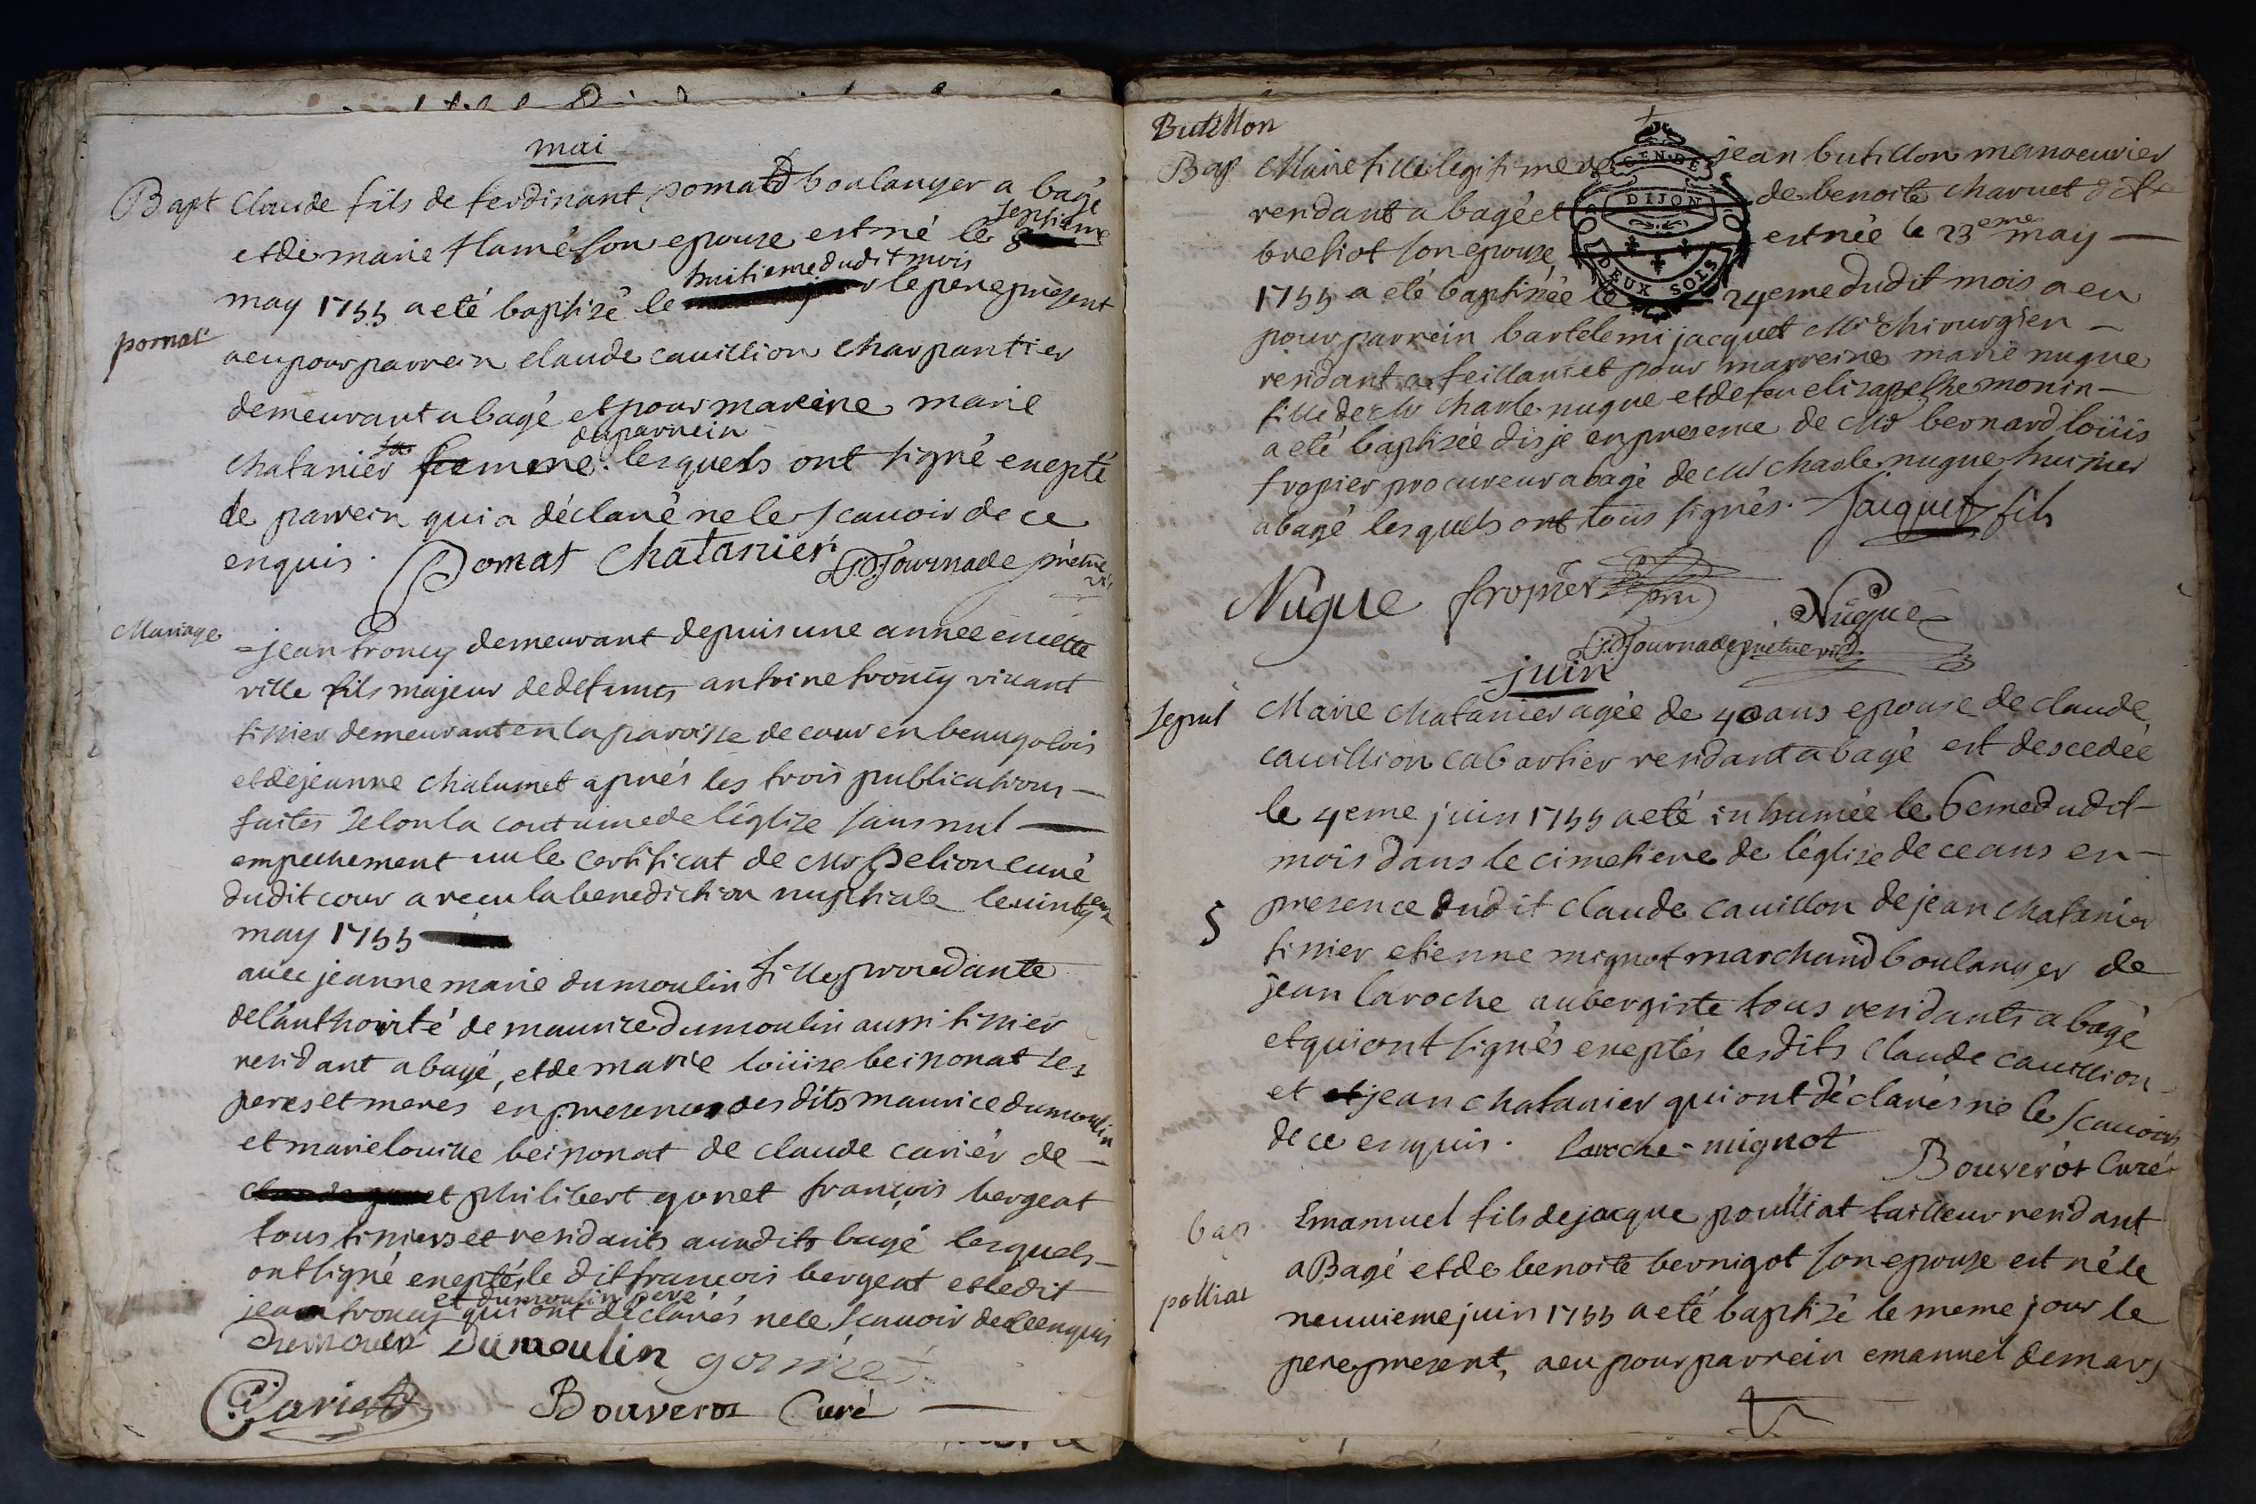 mai
Bapt Claude fils de ferdinant pomat boulanger a bagé
et de marie flamé son epouse est né le septieme
may 1755 a eté baptizé le huitieme dudit mois le pere present
pomat
a eu pour parrein claude cauillion charpantier
demeurant a bagé et pour mareine marie
chatanier femme du parrein lesquels ont signé enepté
le parrein qui a déclaré ne le scauoir de ce
enquis. Pomat Chatanier Tournade prêtre vic
Mariage
jean troncy demeurant depuis une année en cette
ville fils majeur de defunts antoine troncy viuant
tissier demeurant en la paroisse de cour en beaugolois
et de jeanne chalumet aprés les trois publications
faites selon la coutume de l'église sans nul
empechement uu le certificat de Mr pelion curé
dudit cour a recu la benediction nuptiale le uint
may 1755
auec jeanne marie dumoulin fille procedante
de l'authorité de maurice dumoulin aussi tissier
residant a bagé, et de marie loüise beissonat ses
peres et meres en presence des dits maurice dumoulin
et marie louise beissonat de claude carier de
philibert gonet françois bergeat
tous tissiers et residants audit bagé lesquels
ont signé eneptés le dit francois bergeat et ledit
jean troncy et dumoulin pere qui ont déclarés ne le scauoir de ce enquis
Dumoulin gonnet
Carier Bouverot Curé
Butillon
Bap Marie fille legitime de jean butillon manoeuvrier
GEN. DE
DIJON
DEUX SOLS
residant a bagé et de benoite charuet dite
brehiot son epouse est née le 23eme may
1755 a eté baptizée le 24eme dudit mois a eu
pour parrein bartelemi jacquet Mr chirurgien
residant a feillans et pour marreine marie nugue
fille de Mr charle nugue et de feu elizabethe monin
a eté baptizée dis je en presence de Mr bernard loüis
fropier procureur a bagé de Mr charle nugue huissier
a bagé lesquels ont tous signés. Jacquet fils
Nugue fropier Nugue
Tournade prêtre vic
juin
sepul Marie chatanier agée de 40 ans epouse de claude
cauillion cabartier residant a bagé est descedée
le 4eme juin 1755 a eté inhumée le 6eme dudit
mois dans le cimetiere de l'église de ceans en
presence dudit claude cauillon de jean chatanier
5
tissier etienne mignot marchand boulanger de
jean laroche aubergiste tous residants a bagé
et qui ont signés eneptés lesdits claude cauillion
et jean chatanier qui ont déclarés ne le scauoir
de ce enquis. Laroche - mignot
Bouverot Curé
bap Emanuel fils de jacque poulliat tailleur residant
a Bagé et de benoite bernigot son epouse est né le
polliat
neuuieme juin 1755 a eté baptizé le meme jour le
pere present, a eu pour parrein emanuel demars